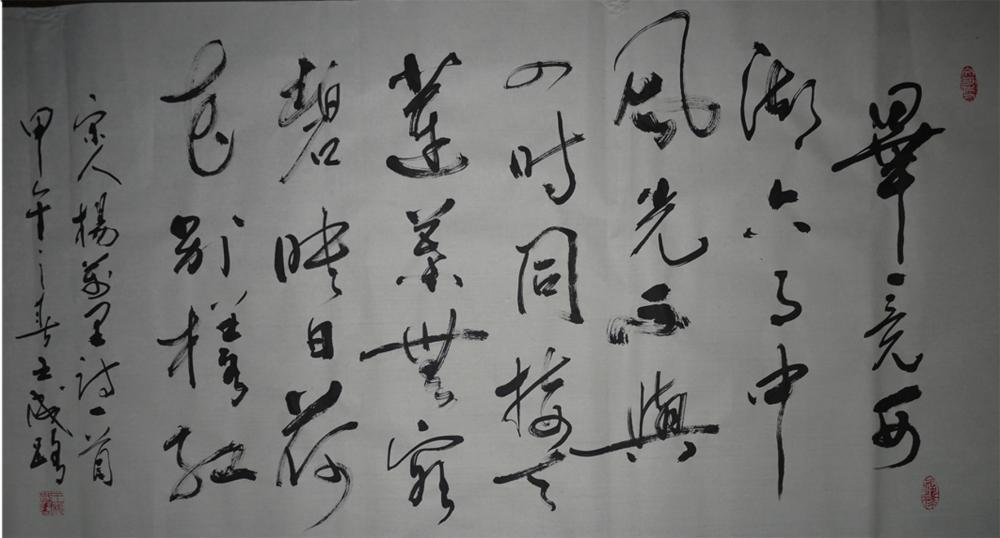 畢竟西
湖六月中
風光不與
四時同接天
蓮葉無窮
碧映日荷
花別樣紅
宋人楊萬里詩一首
甲午之春王成